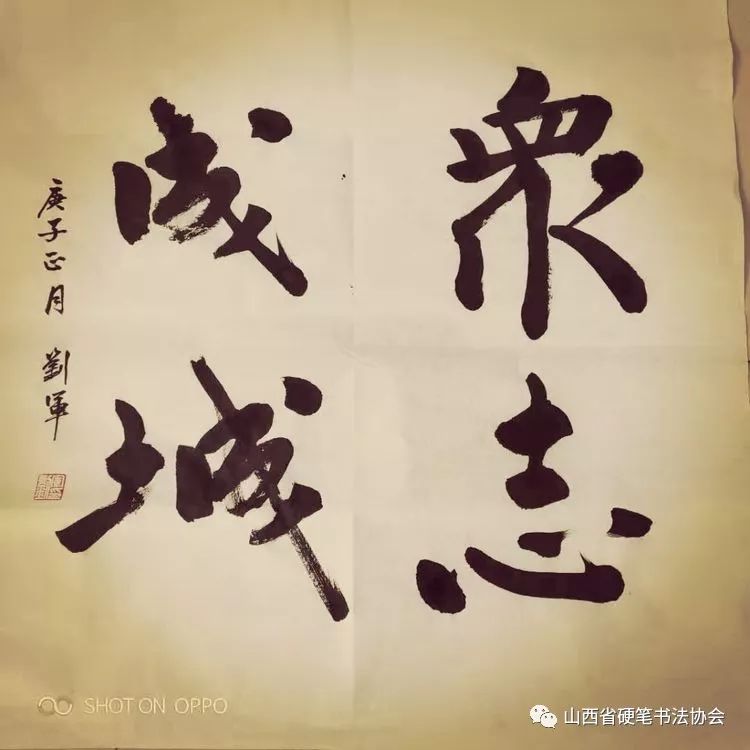 眾志
成城
庚子正月 劉軍
SHOT ON OPPO
山西省硬笔书法协会